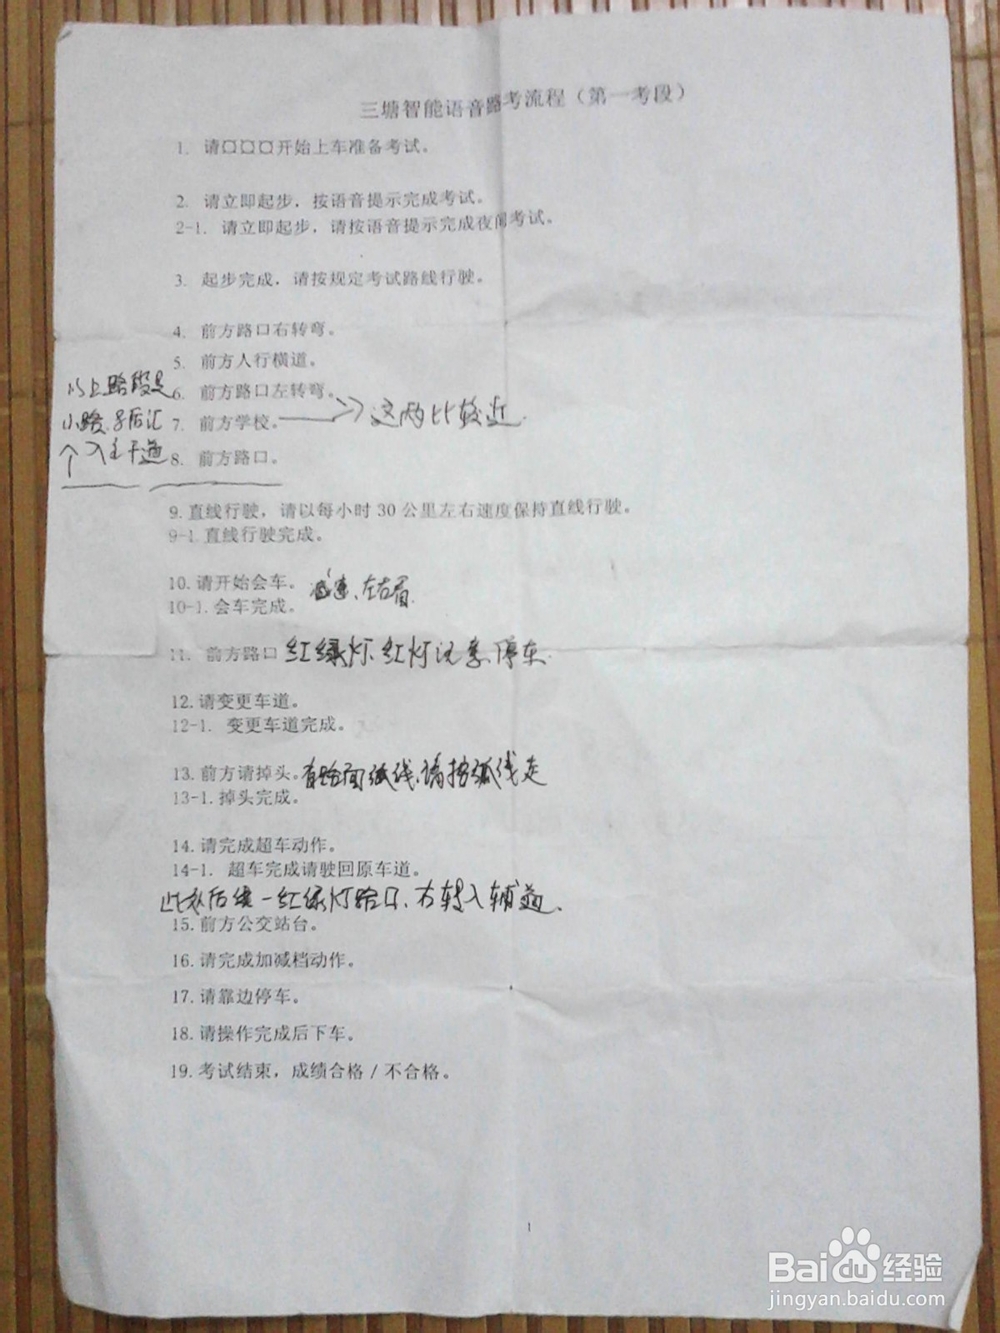 三塘智能语音路考流程（第一考段）
1. 请口口口开始上车准备考试。
2. 请立即起步，按语音提示完成考试。
2-1. 请立即起步，请按语音提示完成夜间考试。
3. 起步完成，请按规定考试路线行驶。
4. 前方路口右转弯。
5. 前方人行横道。
以上路段是
6. 前方路口左转弯。
小路,
7. 前方学校。
这两比较近
入主干道
8. 前方路口。
9.直线行驶，请以每小时30公里左右速度保持直线行驶。
9-1.直线行驶完成。
10.请开始会车。减速、左右看.
10-1.会车完成。
11. 前方路口 红绿灯、红灯记拿停车.
12.请变更车道。
12-1. 变更车道完成。
13.前方请掉头。有路面弧线,请按弧线走
13-1.掉头完成。
14.请完成超车动作。
14-1. 超车完成请驶回原车道。
一红绿灯路口、右转入辅道.
15.前方公交站台。
16.请完成加减档动作。
17.请靠边停车。
18.请操作完成后下车。
19.考试结束，成绩合格/不合格。
1
Baidu经验
jingyan.baidu.com